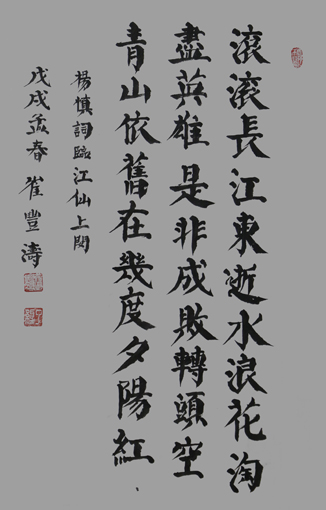 滚滚長江東逝水浪花淘
盡英雄是非成敗轉頭空
青山依舊在幾度夕陽紅
楊慎詞臨江仙上闋
戊戌孟春崔豐濤